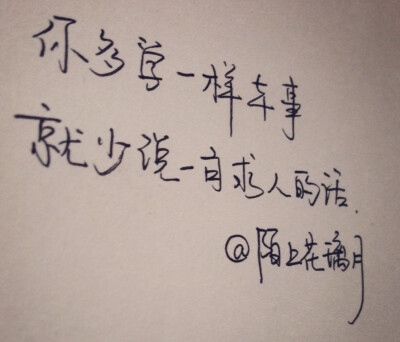 你多学一样本事
就少说一句求人的话.
@陌上花璃月